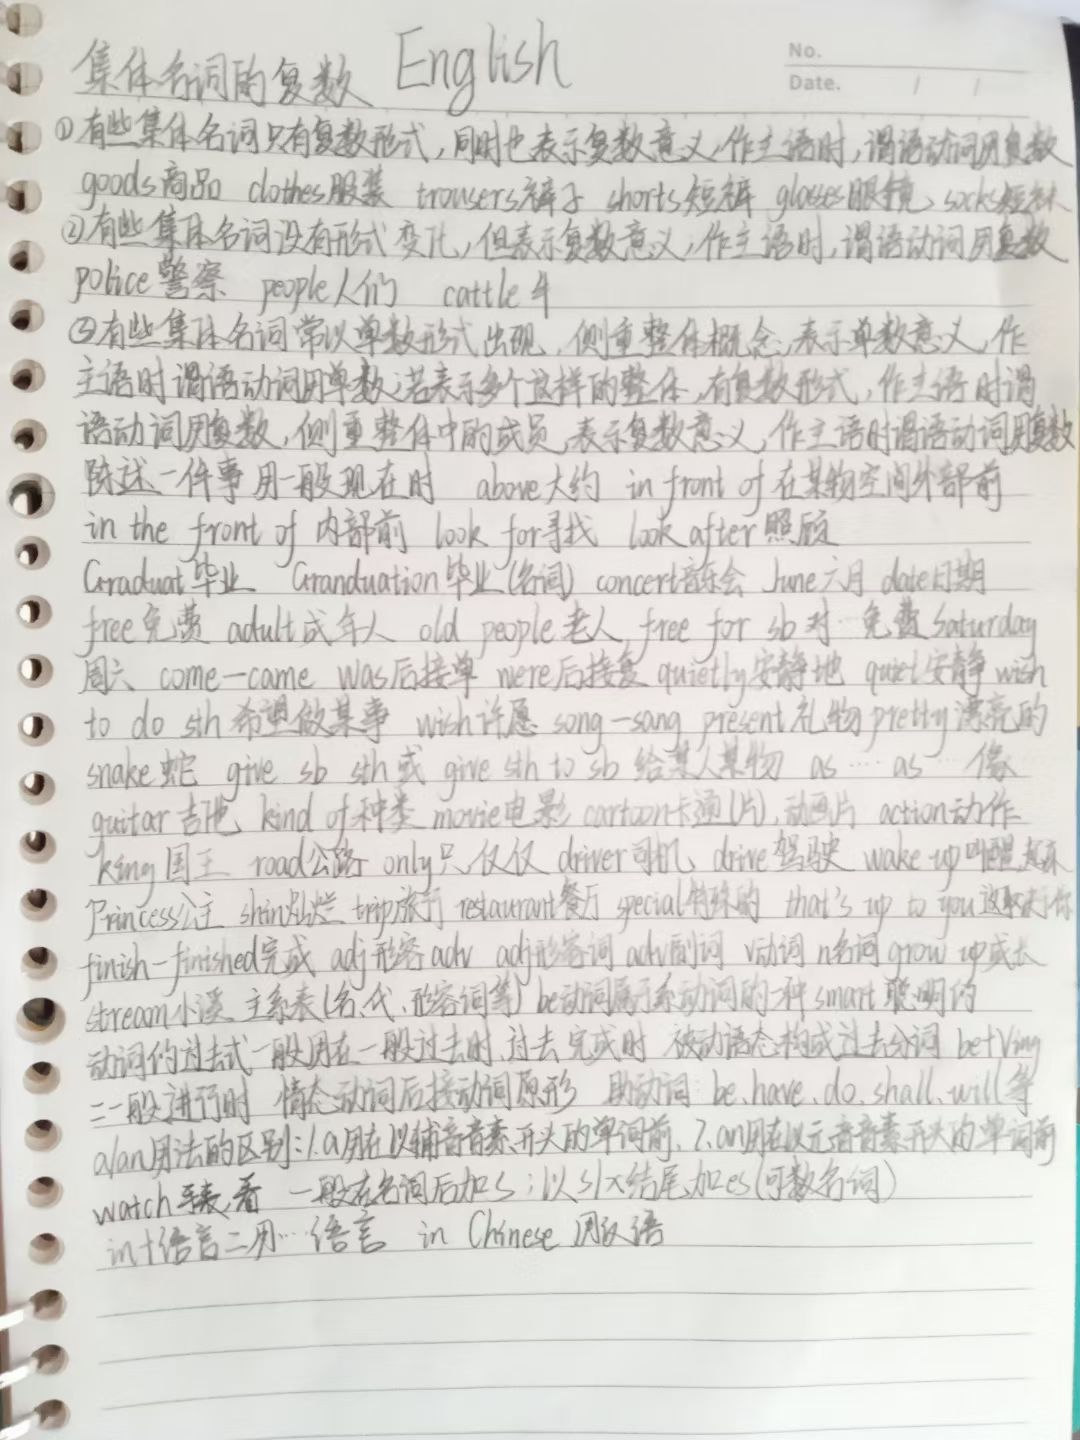 集体名词的复数 English
No.
Date. / /
①有些集体名词只有复数形式,同时也表示复数意义,作主语时,谓语动词用复数
goods商品 clothes服装 trousers裤子 shorts短裤 glasses眼镜 socks短袜
②有些集体名词没有形式变化,但表示复数意义,作主语时,谓语动词用复数
police警察 people人们 cattle牛
③有些集体名词常以单数形式出现,侧重整体概念,表示单数意义,作
主语时谓语动词用单数;若表示多个这样的整体,有复数形式,作主语时谓
语动词用复数,侧重整体中的成员,表示复数意义,作主语时谓语动词用复数
陈述一件事用一般现在时 above大约 in front of在某物空间外部前
in the front of 内部前 look for寻找 look after照顾
Graduat毕业 Granduation毕业(名词) concert音乐会 June六月 date日期
free免费 adult成年人 old people老人 free for sb对…免费 Saturday
周六 come—came was后接单 were后接复 quietly安静地 quiet安静 wish
to do sth希望做某事 wish许愿 song—sang present礼物 pretty漂亮的
snake蛇 give sb sth或give sth to sb 给某人某物 as……as… 像
guitar吉他 kind of种类 movie电影 cartoon卡通(片),动画片 action动作
king国王 road公路 only只,仅仅 driver司机 drive驾驶 wake up叫醒,起床
Princess公主 shin灿烂 trip旅行 restaurant餐厅 special特殊的 that's up to you这取决于你
finish—finished完成 adj形容adv adj形容词 adv副词 v动词 n名词 grow up成长
stream小溪 主系表(名、代、形容词等) be动词属于系动词的一种 smart聪明的
动词的过去式一般用在一般过去时,过去完成时 被动语态构成过去分词 be+Ving
=一般进行时 情态动词后接动词原形 助动词:be、have、do、shall、will等
a/an用法的区别:1.a用在以辅音音素开头的单词前、2.an用在以元音音素开头的单词前
watch手表,看 一般在名词后加s;以s/x结尾加es(可数名词)
in+语言=用…语言 in Chinese 用汉语